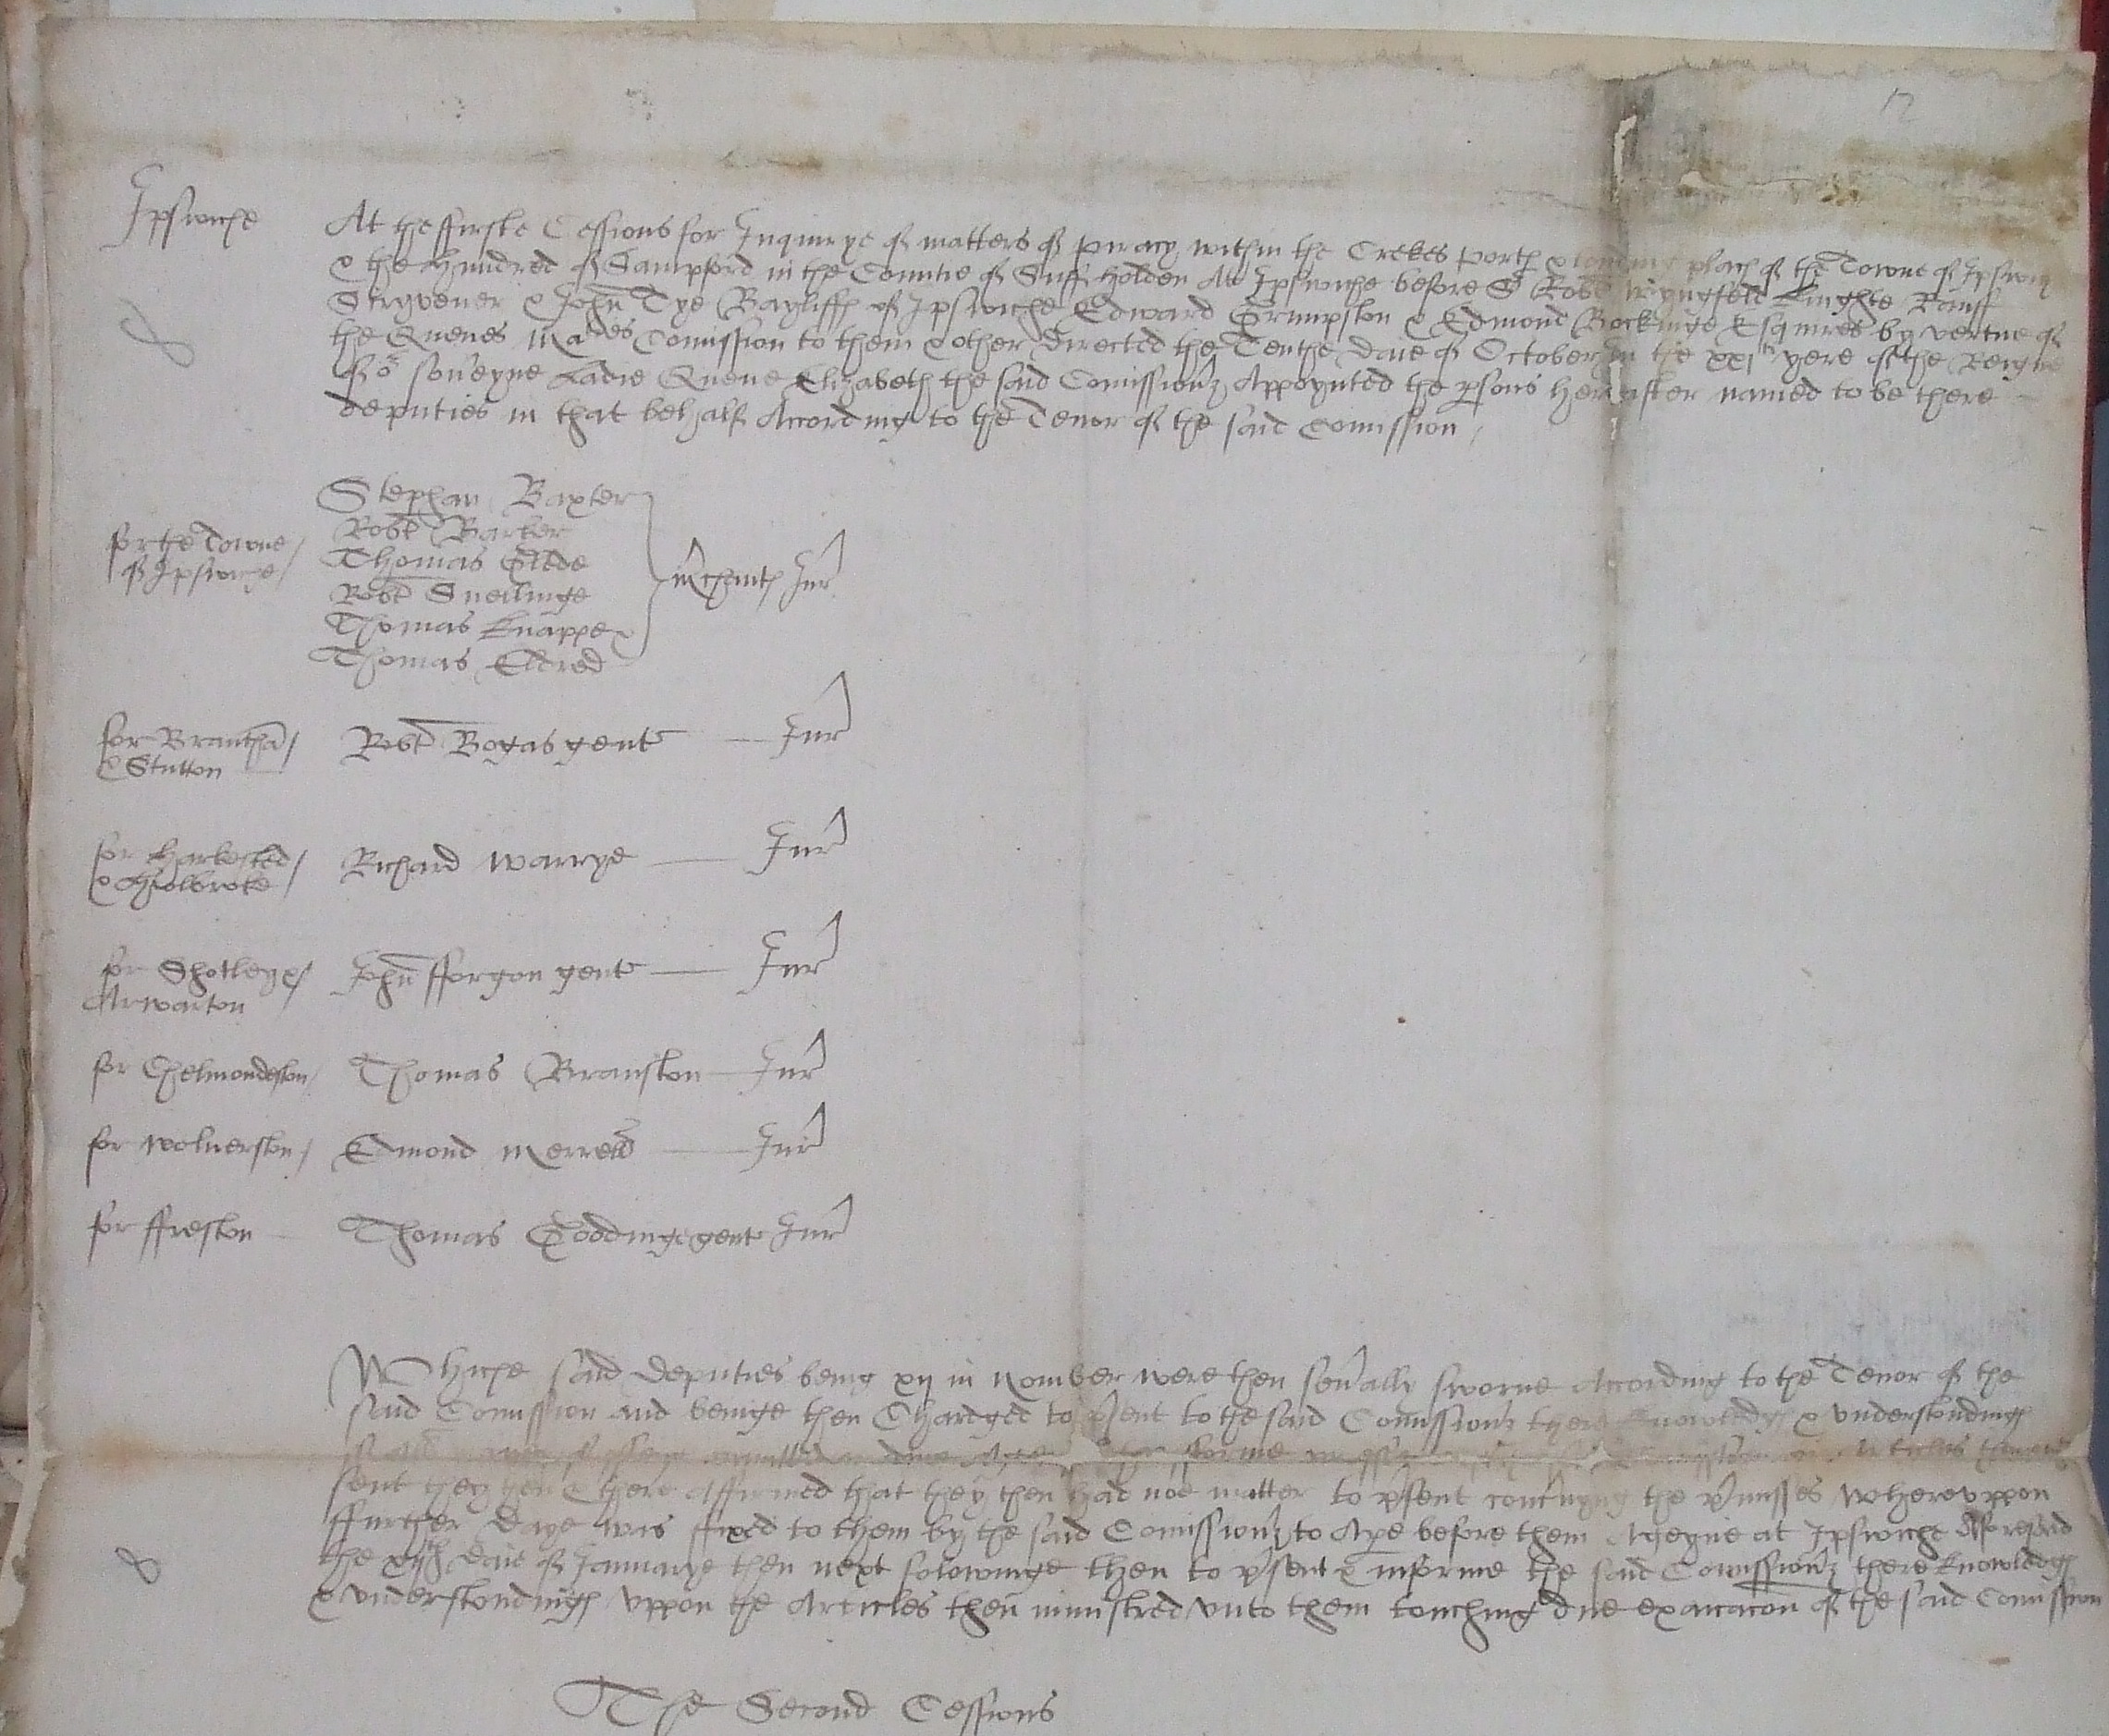 12
Ipswiche
At the ffirste Cessions for Inquirye of matters of piracy within the Crekes Portes & landing places of the Towne of Ipswich
& the Hundred of Sampford in the Countie of Suff holden At Ipswiche before Sr Robt Wyngfeld Knighte Rauff
Scryvener & John Tye Bayliffes of Ipswiche Edward Grimpston & Edmond Bockinge Esquires by vertue of
the Quenes Maties Comission to them & other Directed the Tenthe Daie of October In the xxith yere of the Reigne
of or sov'eyne Ladie Quene Elizabeth the said Comissionrs Appoynted the p'sons hereafter named to be there
deputies in that behalf According to the Tenor of the said Comission
for the Towne
of Ipswiche
Stephan Baxter
Robt Barker
Thomas Glede
Robt Snellinge
Thomas Knappe &
Thomas Eldred
m'chantes Jur
for Brantha
& Stutton
Robt Bogas gent Jur
for Harksted
& Holbroke
Richard Warrye Jur
for Shotley &
Arwarton
John fforgon gent Jur
for Chelmondeston
Thomas Branston Jur
for Wolverston
Edmond Merrell Jur
for ffreston
Thomas Goddinge gent Jur
Whiche said Deputies being xij in nomber were then sev'ally sworne According to the Tenor of the
said Comission and beinge then Chardged to p'sent to the said Comissionrs there knowledges & understondinges
sent they then & there Affirmed that they then had noe matter to p'sent conc'nyng the p'misses Whereuppon
ffurther Daye was ffixed to them by the said Comissionrs to Ape before them Ageyne at Ipswiche Aforesaid
the Daie of Januarye then next folowinge then to p'sent & informe the said Comissionrs there knowledges
& understondinges uppon the Articles then ministred unto them touching due exacucon of the said Comission
The Second Cessions